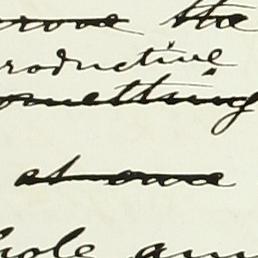 the
roductive
omething
at once
hole